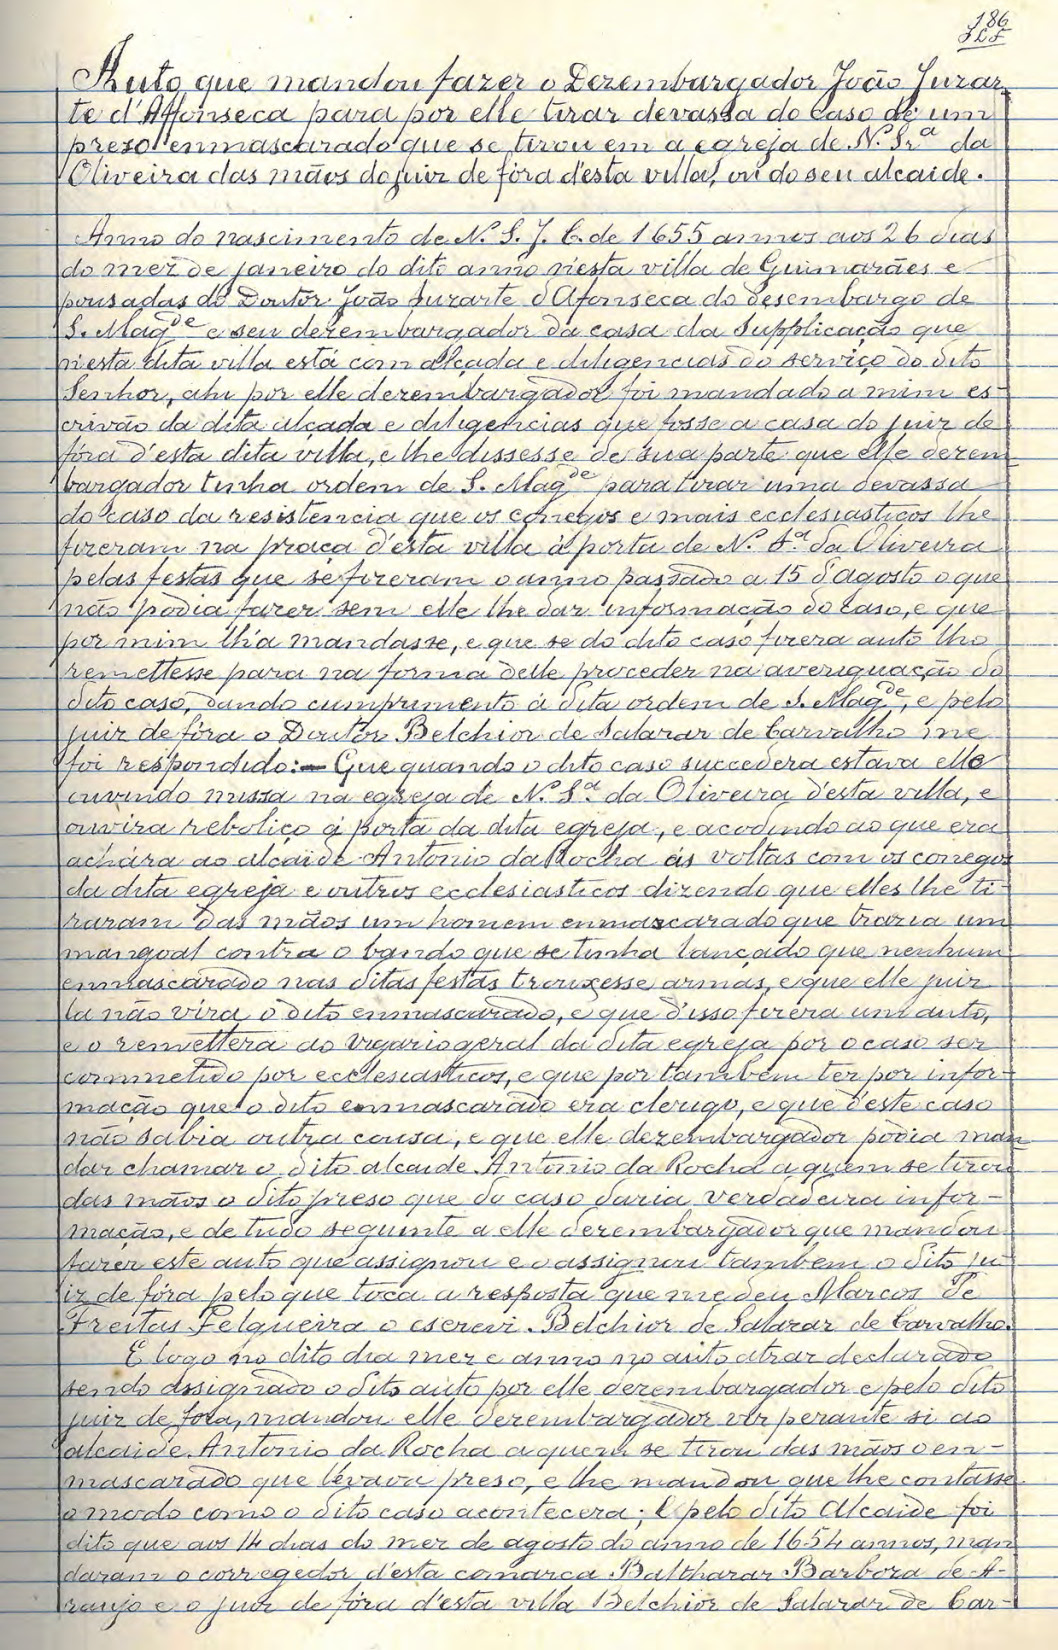 186
Auto que mandou fazer o Dezembargador João Jurar-
te d'Affonseca para por elle tirar devassa do caso de um
prezo enmascarado que se tirou em a egreja de N. Sr.ª da
Oliveira das mãos do juiz de fóra d'esta villa, ou do seu alcaide.
Anno do nascimento de N. S. J. C. de 1655 annos aos 26 dias
do mez de janeiro do dito anno n'esta villa de Guimarães e
pousadas do Doutor João Jurarte d'Afonseca do desembargo de
S. Mag.de e seu dezembargador da casa da Supplicação que
n'esta dita villa está com alçada e diligencias do serviço do dito
Senhor, ahi por elle dezembargador foi mandado a mim es-
crivão da dita alçada e diligencias que fosse a casa do juiz de
fóra d'esta dita villa, e lhe dissesse de sua parte que elle dezem-
bargador tinha ordem de S. Mag.de para tirar uma devassa
do caso da resistencia que os conegos e mais ecclesiasticos lhe
fizeram na praça d'esta villa á porta de N. S.ª da Oliveira
pelas festas que se fizeram o anno passado a 15 d'agosto o que
não podia fazer sem elle lhe dar informação do caso, e que
por mim lh'a mandasse, e que se do dito caso fizera auto lho
remettesse para na forma delle proceder na averiguação do
dito caso, dando cumprimento á dita ordem de S. Mag.de, e pelo
juiz de fóra o Doutor Belchior de Salazar de Carvalho me
foi respondido:— Que quando o dito caso succedera estava elle
ouvindo missa na egreja de N. S.ª da Oliveira d'esta villa, e
ouvira reboliço á porta da dita egreja, e acodindo ao que era
achára ao alcaide Antonio da Rocha ás voltas com os conegos
da dita egreja e outros ecclesiasticos dizendo que elles lhe ti-
raram das mãos um homem enmascarado que trazia um
mangoal contra o bando que se tinha lançado que nenhum
enmascarado nas ditas festas trouxesse armas, e que elle juiz
la não vira o dito enmascarado, e que d'isso fizera um auto,
e o remettera ao vigario geral da dita egreja por o caso ser
commetido por ecclesiasticos, e que por tambem ter por infor-
mação que o dito enmascarado era clerigo, e que d'este caso
não sabia outra cousa, e que elle dezembargador podia man-
dar chamar o dito alcaide Antonio da Rocha a quem se tirou
das mãos o dito preso que do caso daria verdadeira infor-
mação, e de tudo seguinte a elle dezembargador que mandou
fazer este auto que assignou e o assignou tambem o dito ju-
iz de fóra pelo que toca a resposta que me deu Marcos de
Freitas Felgueira o escrevi. Belchior de Salazar de Carvalho.
E logo no dito dia mez e anno no auto atraz declarado
sendo assignado o dito auto por elle dezembargador e pelo dito
juiz de fora, mandou elle dezembargador vir perante si ao
alcaide Antonio da Rocha a quem se tirou das mãos o en-
mascarado que levava preso, e lhe mandou que lhe contasse
o modo como o dito caso acontecera; E pelo dito Alcaide foi
dito que aos 14 dias do mez de agosto do anno de 1654 annos, man-
daram o corregedor d'esta comarca Balthazar Barboza de A-
raujo e o juiz de fóra d'esta villa Belchior de Salazar de Car-